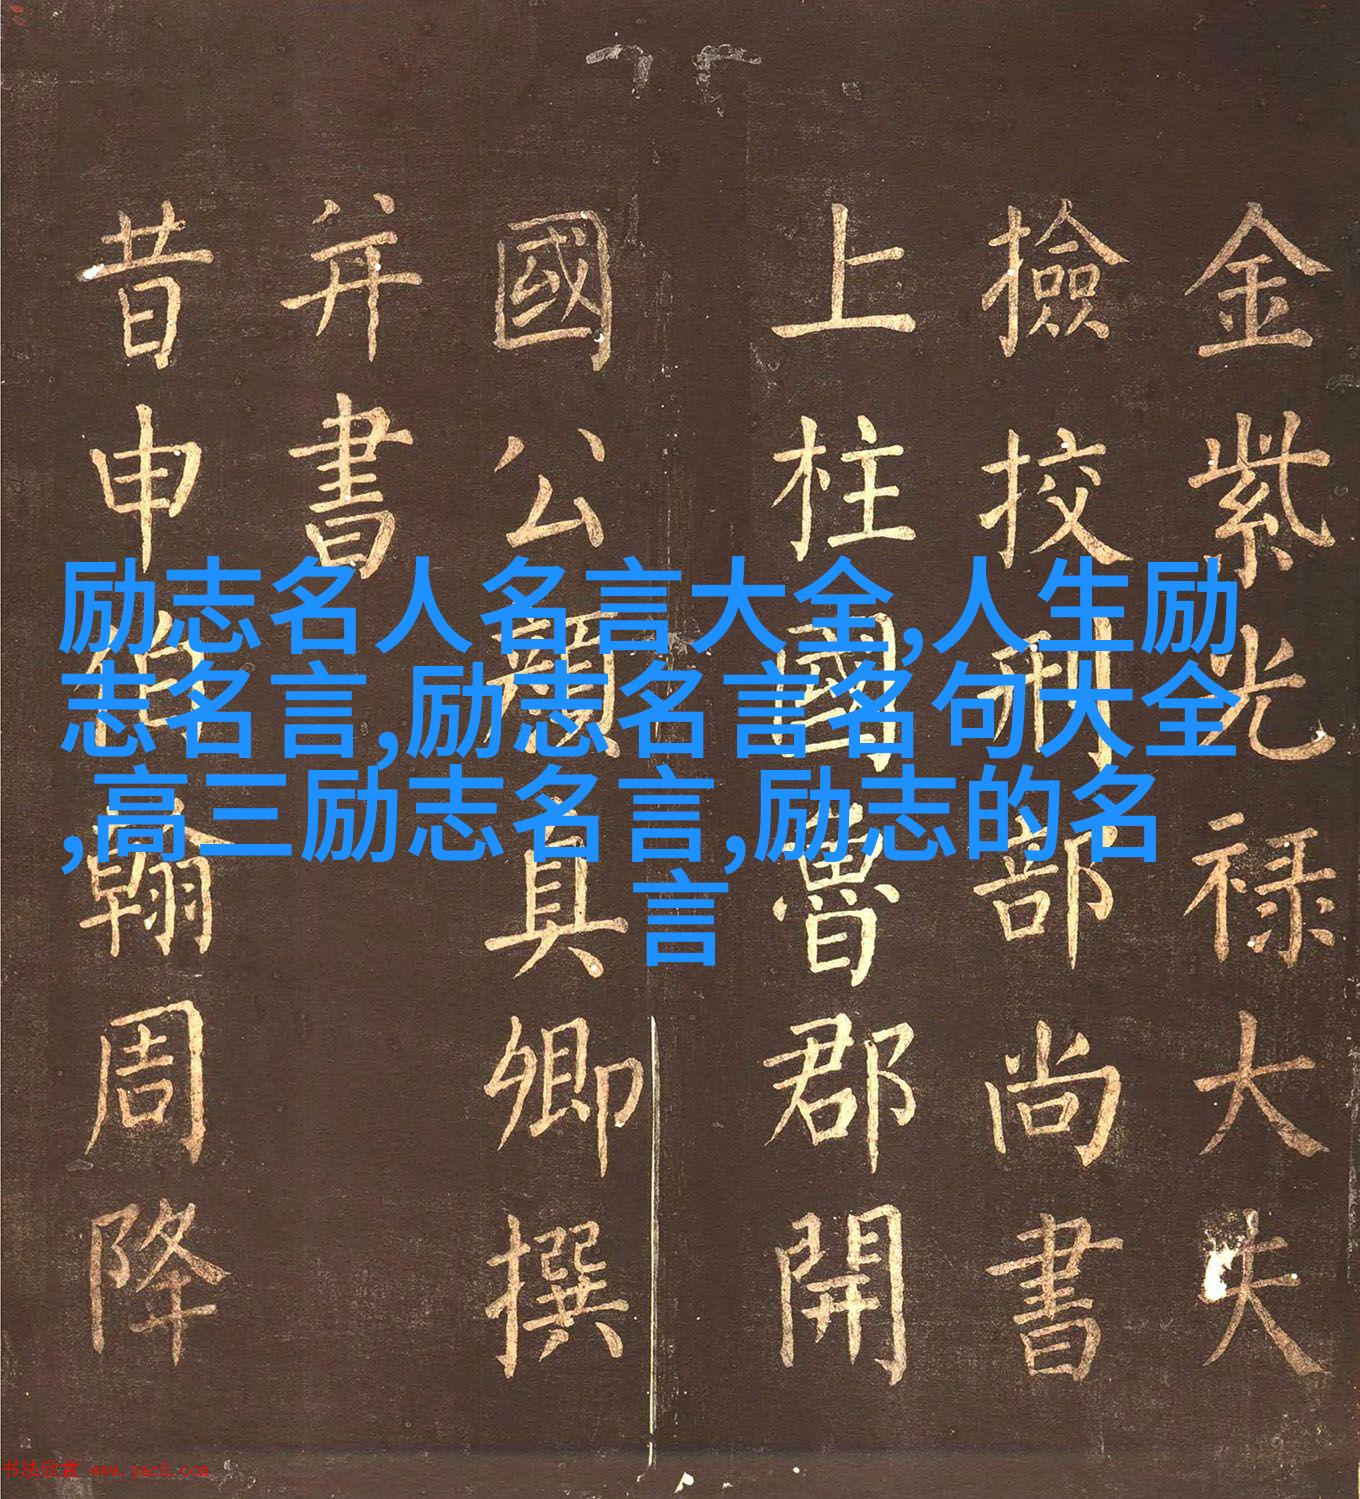 励志名人名言大全,人生励
志名言,励志名言名句大全
,高三励志名言,励志的名
言
金紫光禄大夫
撿挍刑部尚書
上柱國魯郡開
國公顏真卿撰
并書
昔申伯翰周降
书法欣赏 www.yac8.com